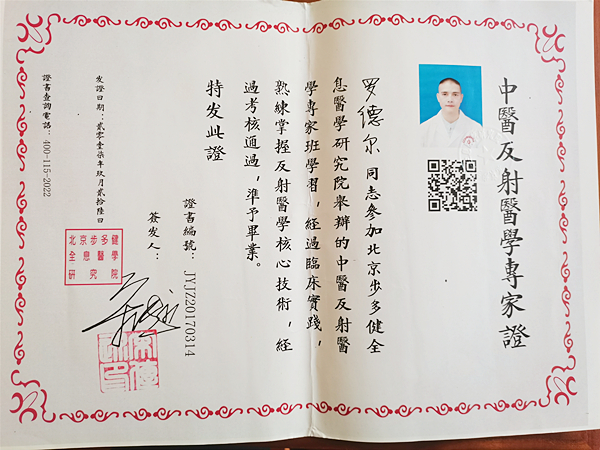 中醫反射醫學專家證
罗德尔同志參加北京步多健全
息醫學研究院舉辦的中醫反射醫
學專家班學習，經過臨床實踐，
熟練掌握反射醫學核心技術，經
過考核通過，準予畢業。
特发此證
證書編號：JYJZ20170314
簽发人：
北京步多健
全息醫學
研究院
发證日期：貳零壹柒年玖月貳拾陸日
證書查詢電話：400-115-2022